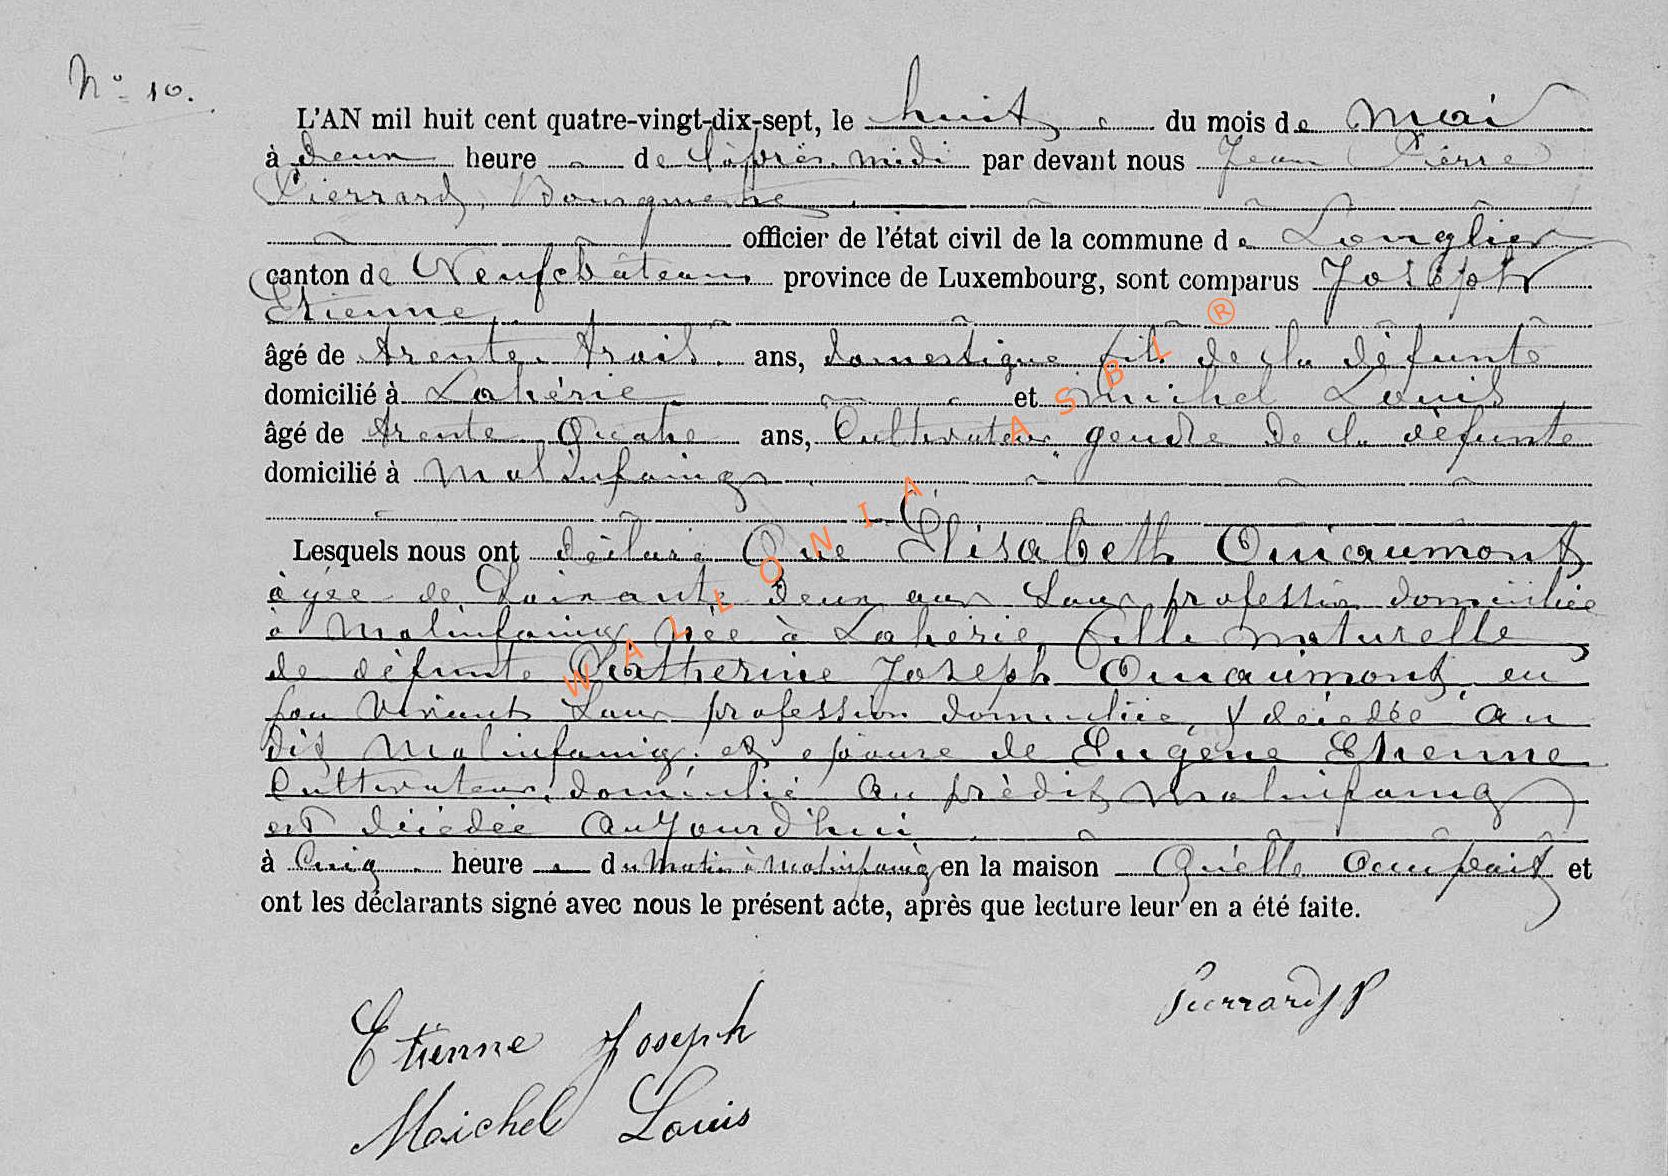 N° 10.
L'AN mil huit cent quatre-vingt-dix-sept, le huit du mois de Mai
à deux heure de l'après midi par devant nous Jean Pierre
Pierrard, Bourgmestre
officier de l'état civil de la commune de Longlier
canton de Neufchâteau province de Luxembourg, sont comparus Joseph
Etienne
âgé de trente trois ans, domestique fils de la défunte
domicilié à Lahérie et Michel Louis
âgé de trente Quatre ans, Cultivateur gendre de la défunte
domicilié à Molinfaing
Lesquels nous ont déclaré Que Elisabeth Oucaumont
âgée de Soixante deux ans Sans profession domiciliée
à Molinfaing née à Lahérie fille naturelle
de défunte Catherine Joseph Oucaumont en
son vivant Sans profession domiciliée, y décédée au
dit Molinfaing et épouse de Eugène Etienne
Cultivateur, domicilié au prédit Molinfaing
est décédée aujourd'hui
à Cinq heure du Matin à Molinfaing en la maison Qu'elle occupait et
ont les déclarants signé avec nous le présent acte, après que lecture leur en a été faite.
Pierrard J P
Etienne Joseph
Maichel Louis
WALLONIA ASBL ®